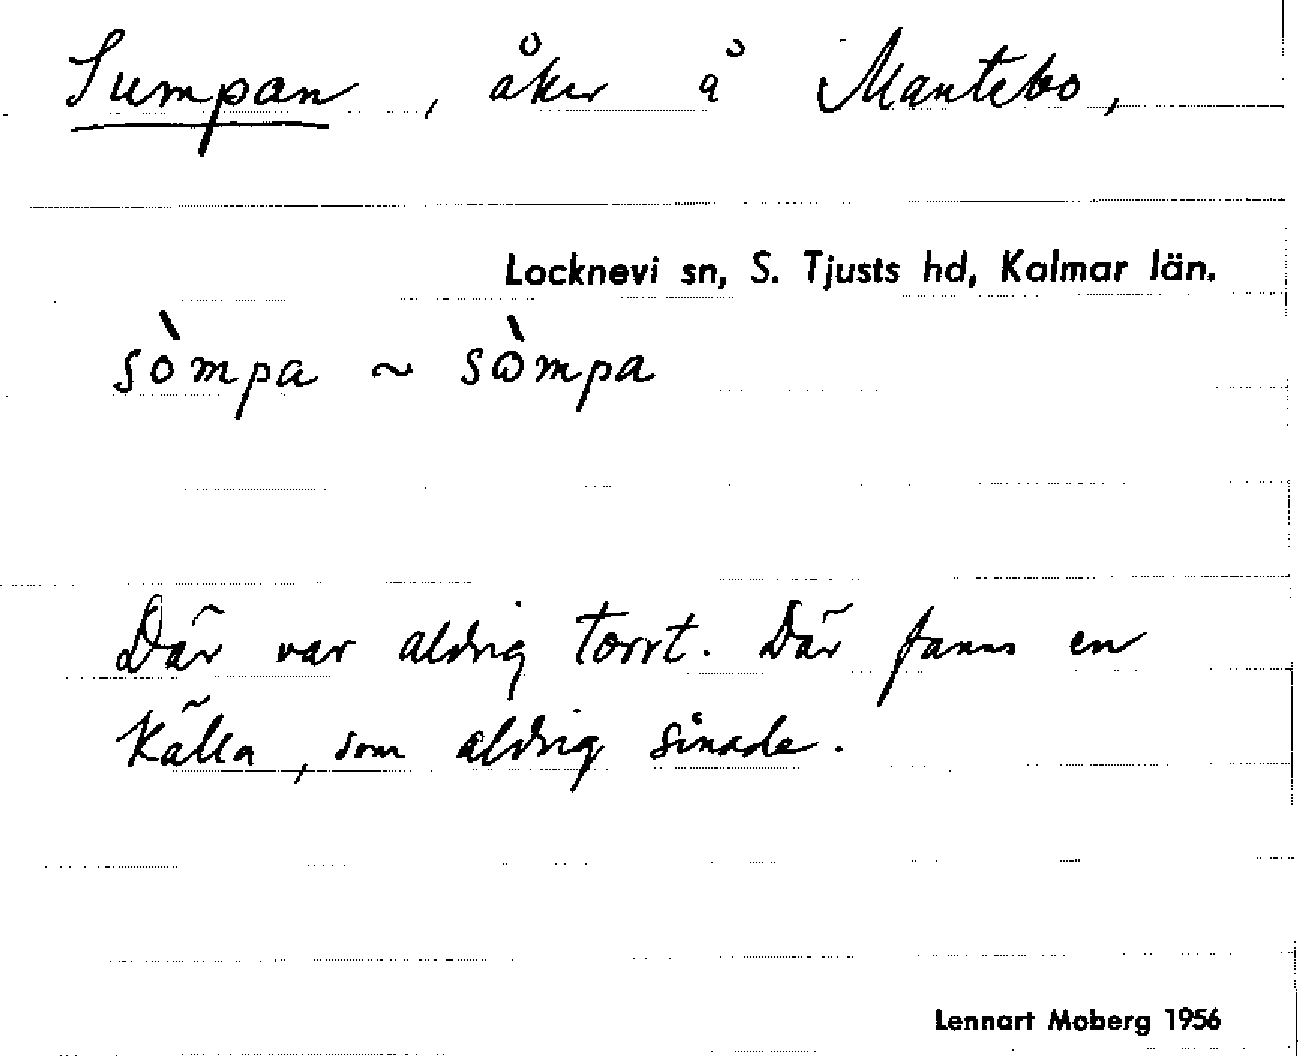 Sumpan, åker å Mantebo,
Locknevi sn, S. Tjusts hd, Kalmar län.
sòmpa ~ sὼmpa
Där var aldrig torrt. Där fanns en
källa, som aldrig sinade.
Lennart Moberg 1956